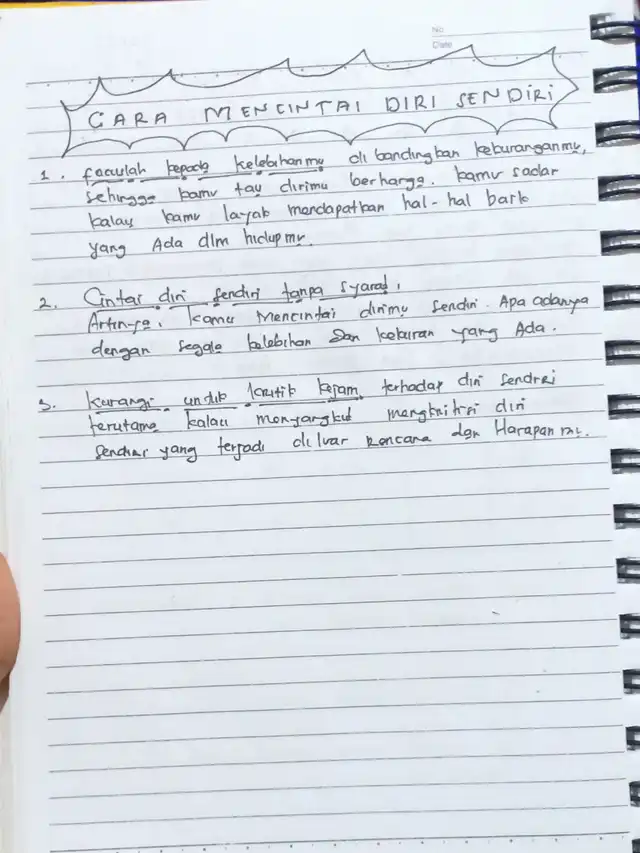 No
Date
CARA MENCINTAI DIRI SENDIRI
1. focuslah kepada kelebihanmu di bandingkan kekuranganmu,
sehingga kamu tau dirimu berharga. kamu sadar
kalau kamu layak mendapatkan hal-hal baik
yang Ada dlm hidupmu.
2. Cintai diri sendiri tanpa syarat,
Artinya, kamu Mencintai dirimu sendiri. Apa adanya
dengan segala kelebihan dan kekuran yang Ada.
3. Kurangi untuk kritik kejam terhadap diri sendiri
terutama kalau menyangkut mengkritisi diri
sendiri yang terjadi diluar rencana dan Harapan mu.